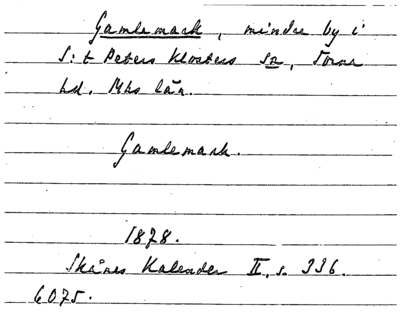 Gamlemark, mindre by i
S:t Peters Klosters sn, Torna
hd. Mhs län.
Gamlemark.
1878.
Skånes Kalender II, s. 336.
6075.